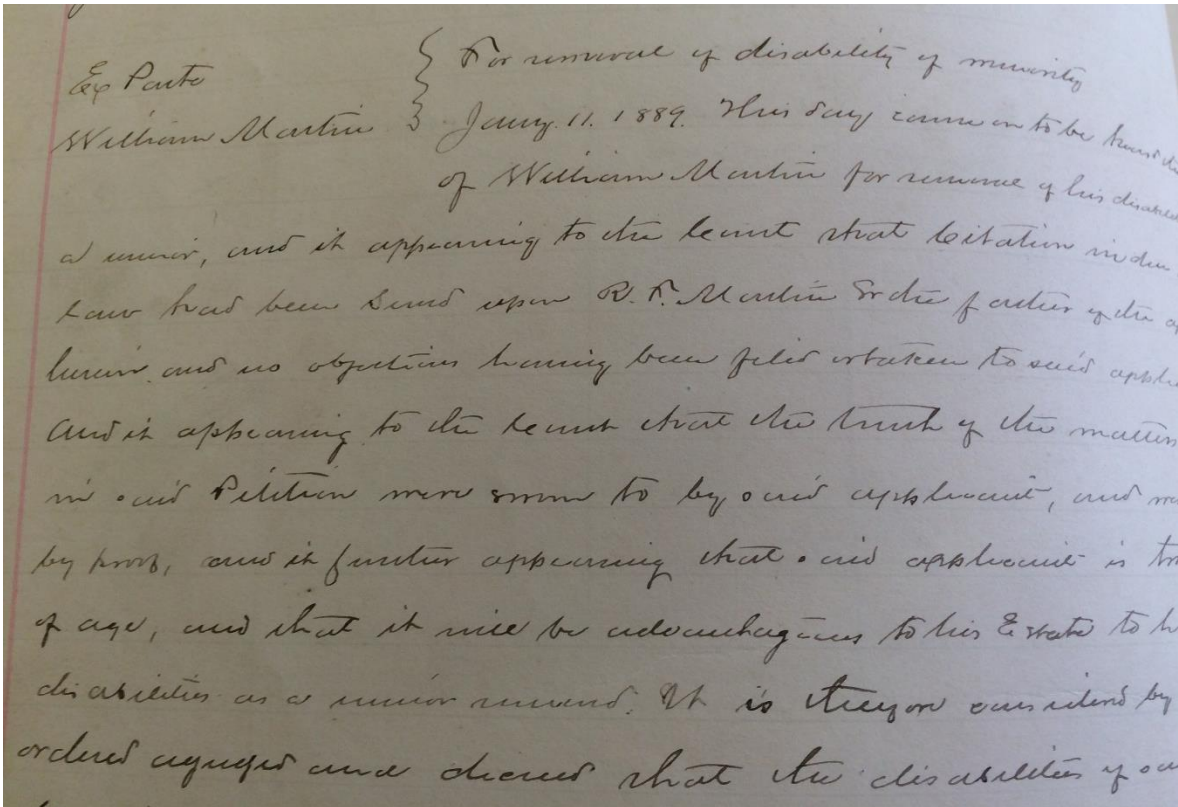 Ex Parte
William Martin
For removal of disability of minority
Jany. 11. 1889. This day came on to be heard the
of William Martin for removal of his
a minor, and it appearing to the Court that Citation in due
Law had been served upon R. F. Martin Sr the father of the
herein and no objections having been filed or taken to said
And it appearing to the Court that the truth of the matters
in said Petition were sworn to by said applicant, and
by proof, and it further appearing that said applicant is
of age, and that it will be advantageous to his Estate to
disabilities as a minor removed. It is therefore considered by
ordered adjudged and decreed that the disabilities of